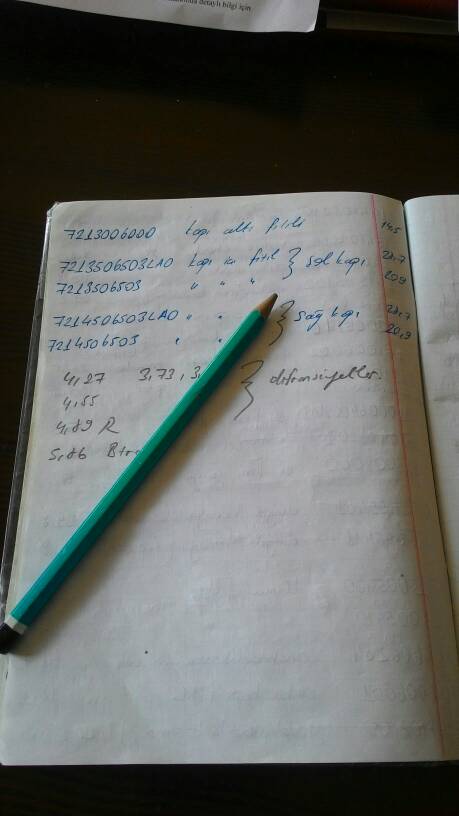 detaylı bilgi için
7213006000 kapı altı fitili 145
7213506503LAO kapı içi fitil } sol kapı 28,7
7213506503 " " " 20,9
7214506503LAO " " } sağ kapı 28,7
7214506503 " " 20,9
4,27 3,73, 3, } difransiyeller
4,55
4,89 R
5,86